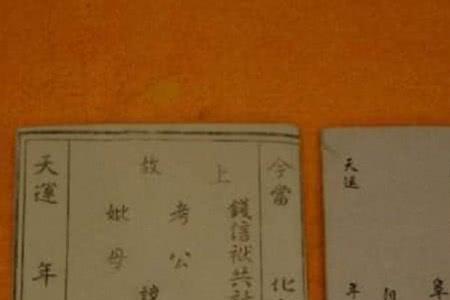 今當 化
上 錢信袱共
考公 諱
故 妣母
天運 年
天運 年